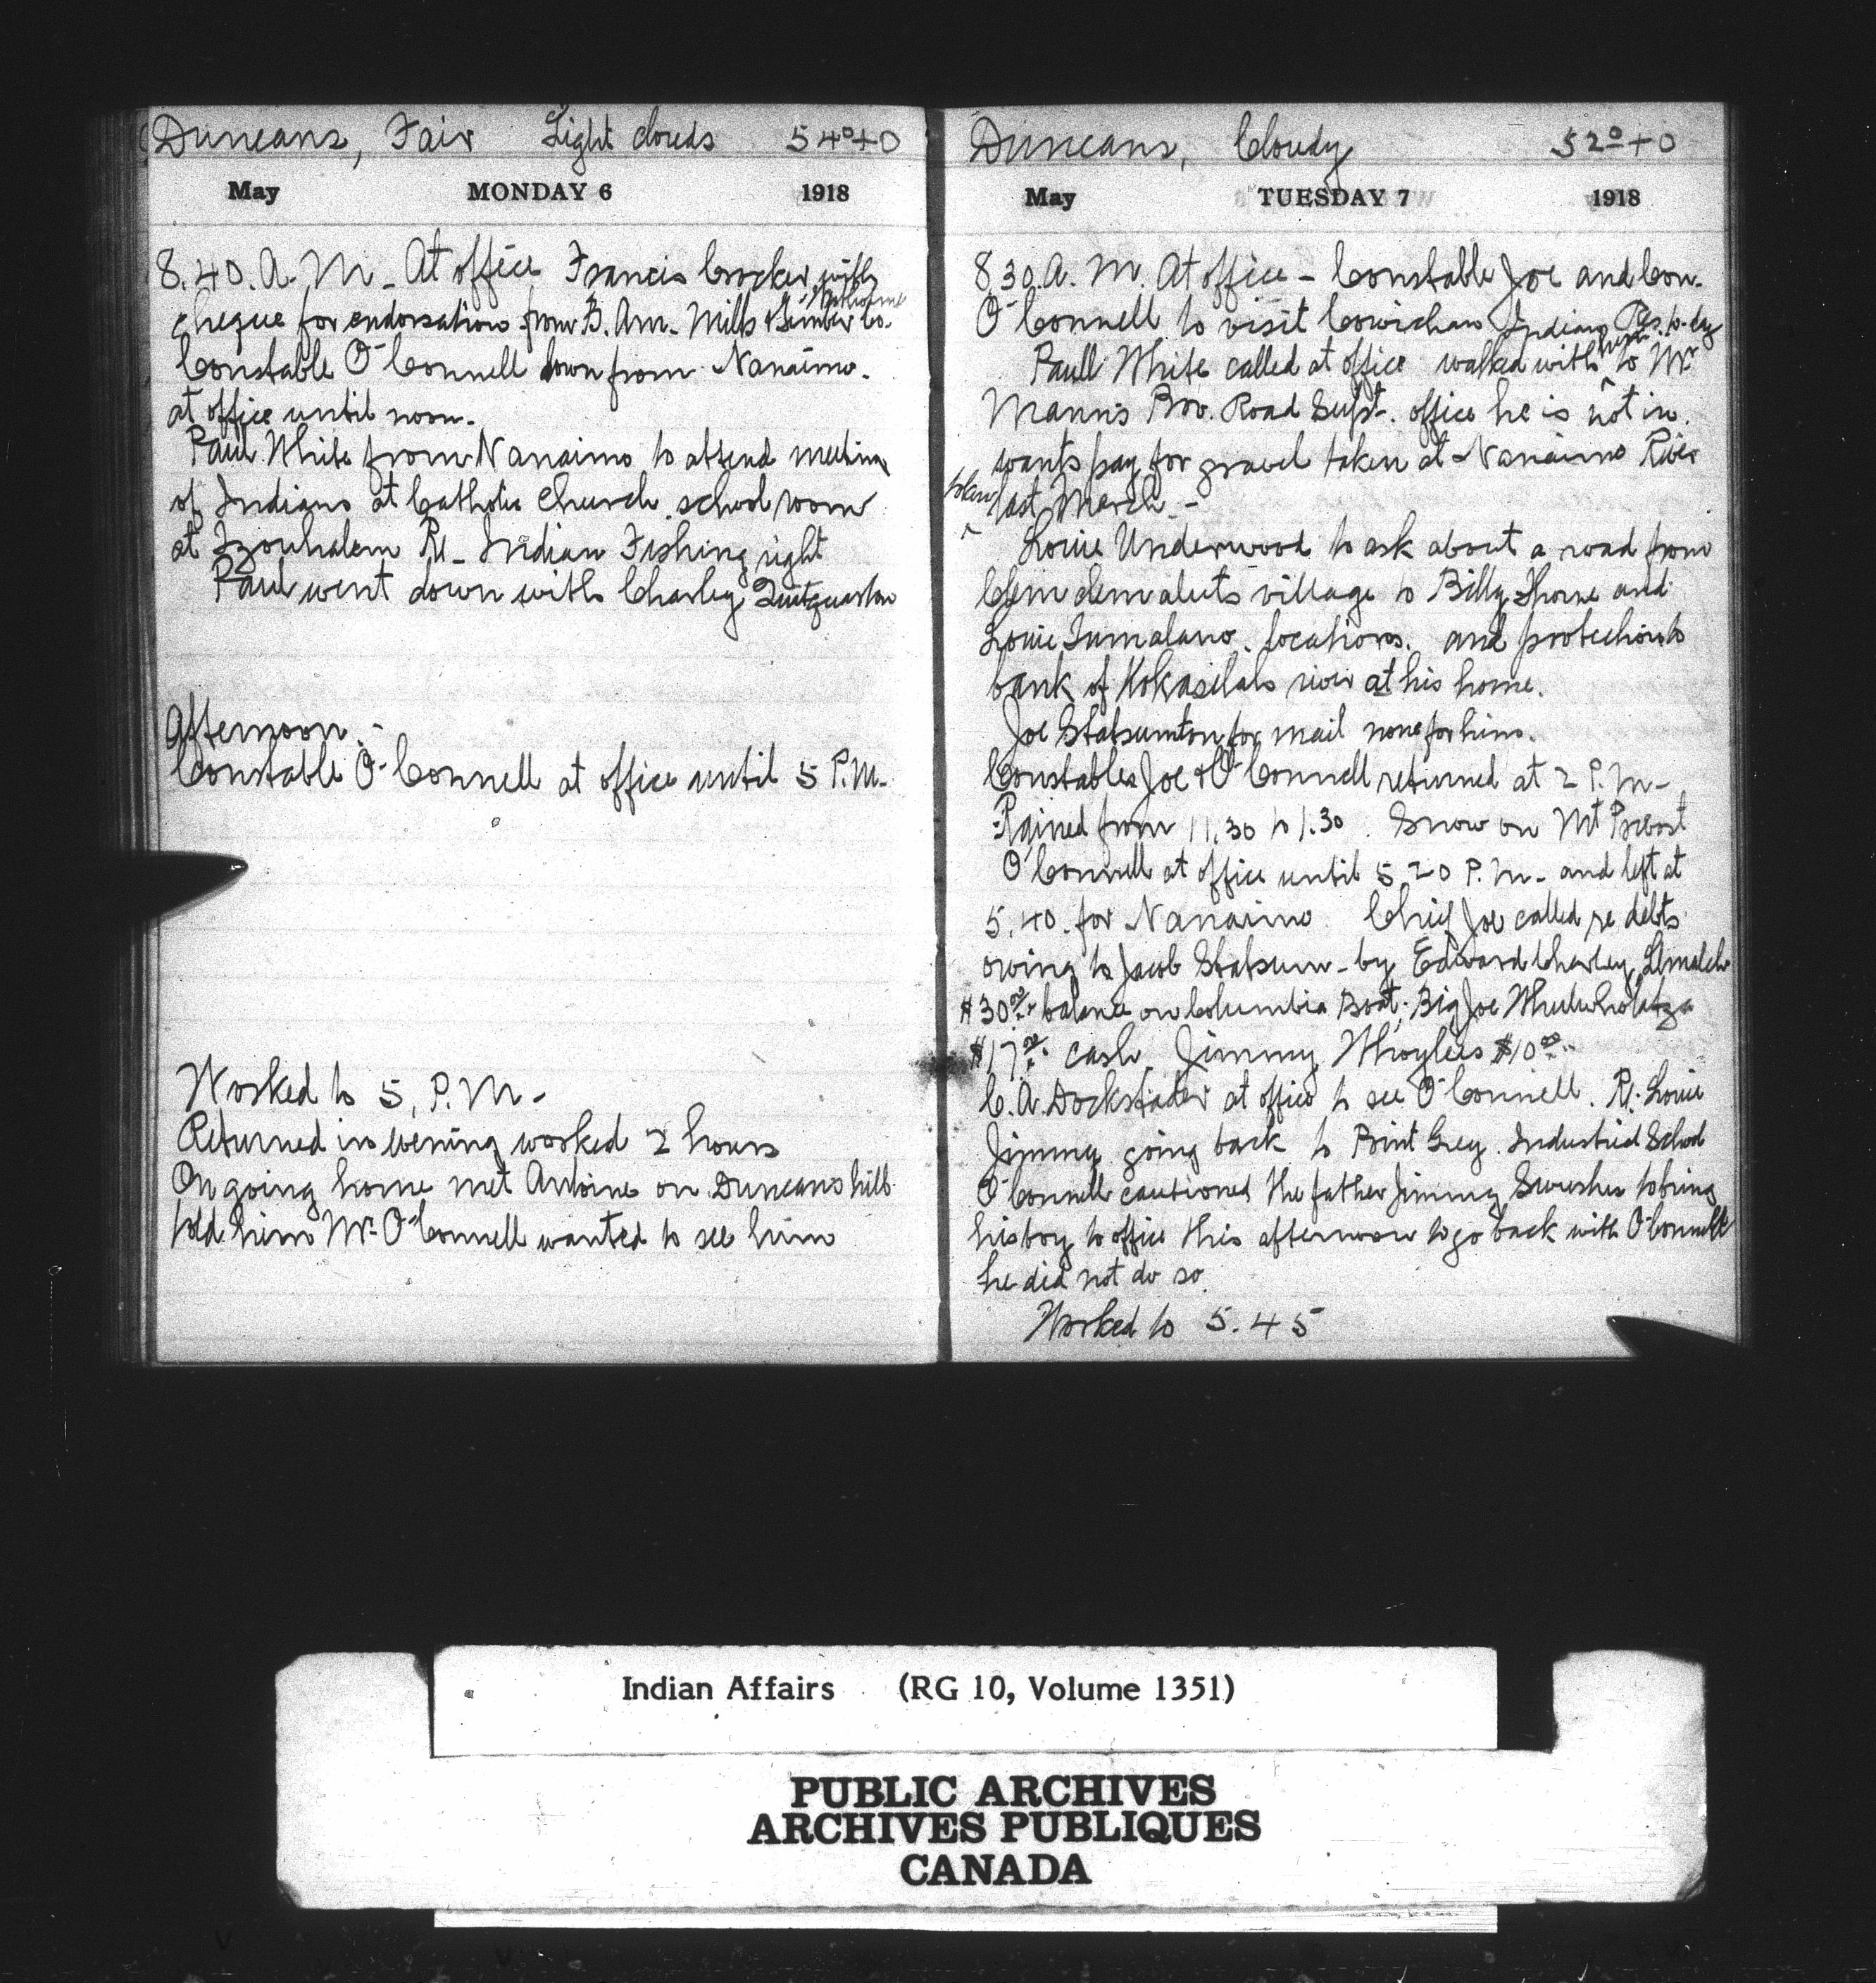 Duncans, Fair Light clouds 54°+0
May MONDAY 6 1918
8.40. A. M - At office Francis Crocker with
cheque for endorsation from B. Am. Mills & Timber Co.
Constable O'Connell down from Nanaimo.
at office until noon.
Paul White from Nanaimo to attend meeting
of Indians at Catholic church school room
at Tzouhalem Re - Indian Fishing right
Paul went down with Charley
Afternoon. -
Constable O'Connell at office until 5 P.M.
Worked to 5, P.M -
Returned in evening worked 2 hours
On going home met Antoine on Duncans hill
told him Mr O'Connell wanted to see him
Duncans, Cloudy 52°+0
May TUESDAY 7 1918
8.30. A. M. At office - Constable Joe and Con.
O'Connell to visit Cowichan Indian Res. to-day
Paull White called at office walked with him to Mr
Mann's Prov. Road Supt. office he is not in.
wants pay for gravel taken at Nanaimo River
taken last March. -
Louie Underwood to ask about a road from
Clemclemaluts village to Billy Thorne and
Louie locations. and protection to
bank of Kokasilah river at his home.
Joe Statsumton for mail none for him.
Constables Joe & O'Connell returned at 2 P.M -
Rained from 11.30 to 1.30. Snow on Mt Prevost
O'Connell at office until 5 20 P.M - and left at
5.40. for Nanaimo. Chief Joe called re debts
owing to Jacob Statsum - by Edward Charley,
$30.00 balance on Columbia Boat; Big Joe
$17.00 cash. Jimmy $10.00
C. A. Dockstader at office to see O'Connell. Re. Louie
Jimmy going back to Point Grey. Industrial School
O'Connell cautioned the father Jimmy to bring
his boy to office this afternoon to go back with O'Connell
he did not do so.
Worked to 5.45
Indian Affairs (RG 10, Volume 1351)
PUBLIC ARCHIVES
ARCHIVES PUBLIQUES
CANADA